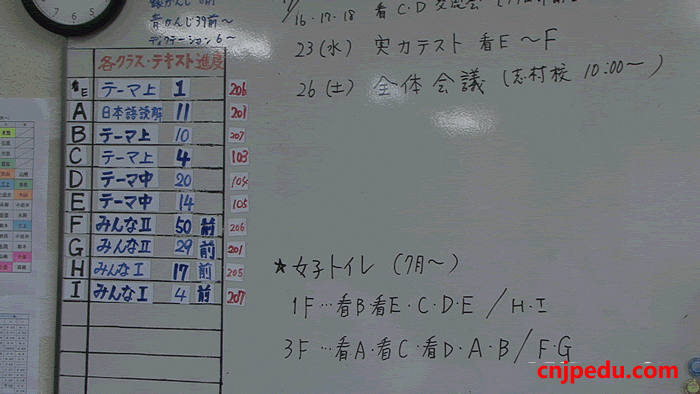 青かんじ39前～
ディクテーション6～
16・17・18 看C・D交流会
23(水) 実力テスト 看E～F
26(土) 全体会議 (志村校 10:00～)
各クラス・テキスト進度
看E テーマ上 1 206
A 日本語読解 11 203
B テーマ上 10 207
C テーマ上 4 103
D テーマ中 20 104
E テーマ中 14 105
F みんなII 50 前 206
G みんなII 29 前 201
H みんなI 17 前 205
I みんなI 4 前 207
★女子トイレ (7月～)
1F…看B看E・C・D・E / H・I
3F…看A・看C・看D・A・B / F・G
cnjpedu.com